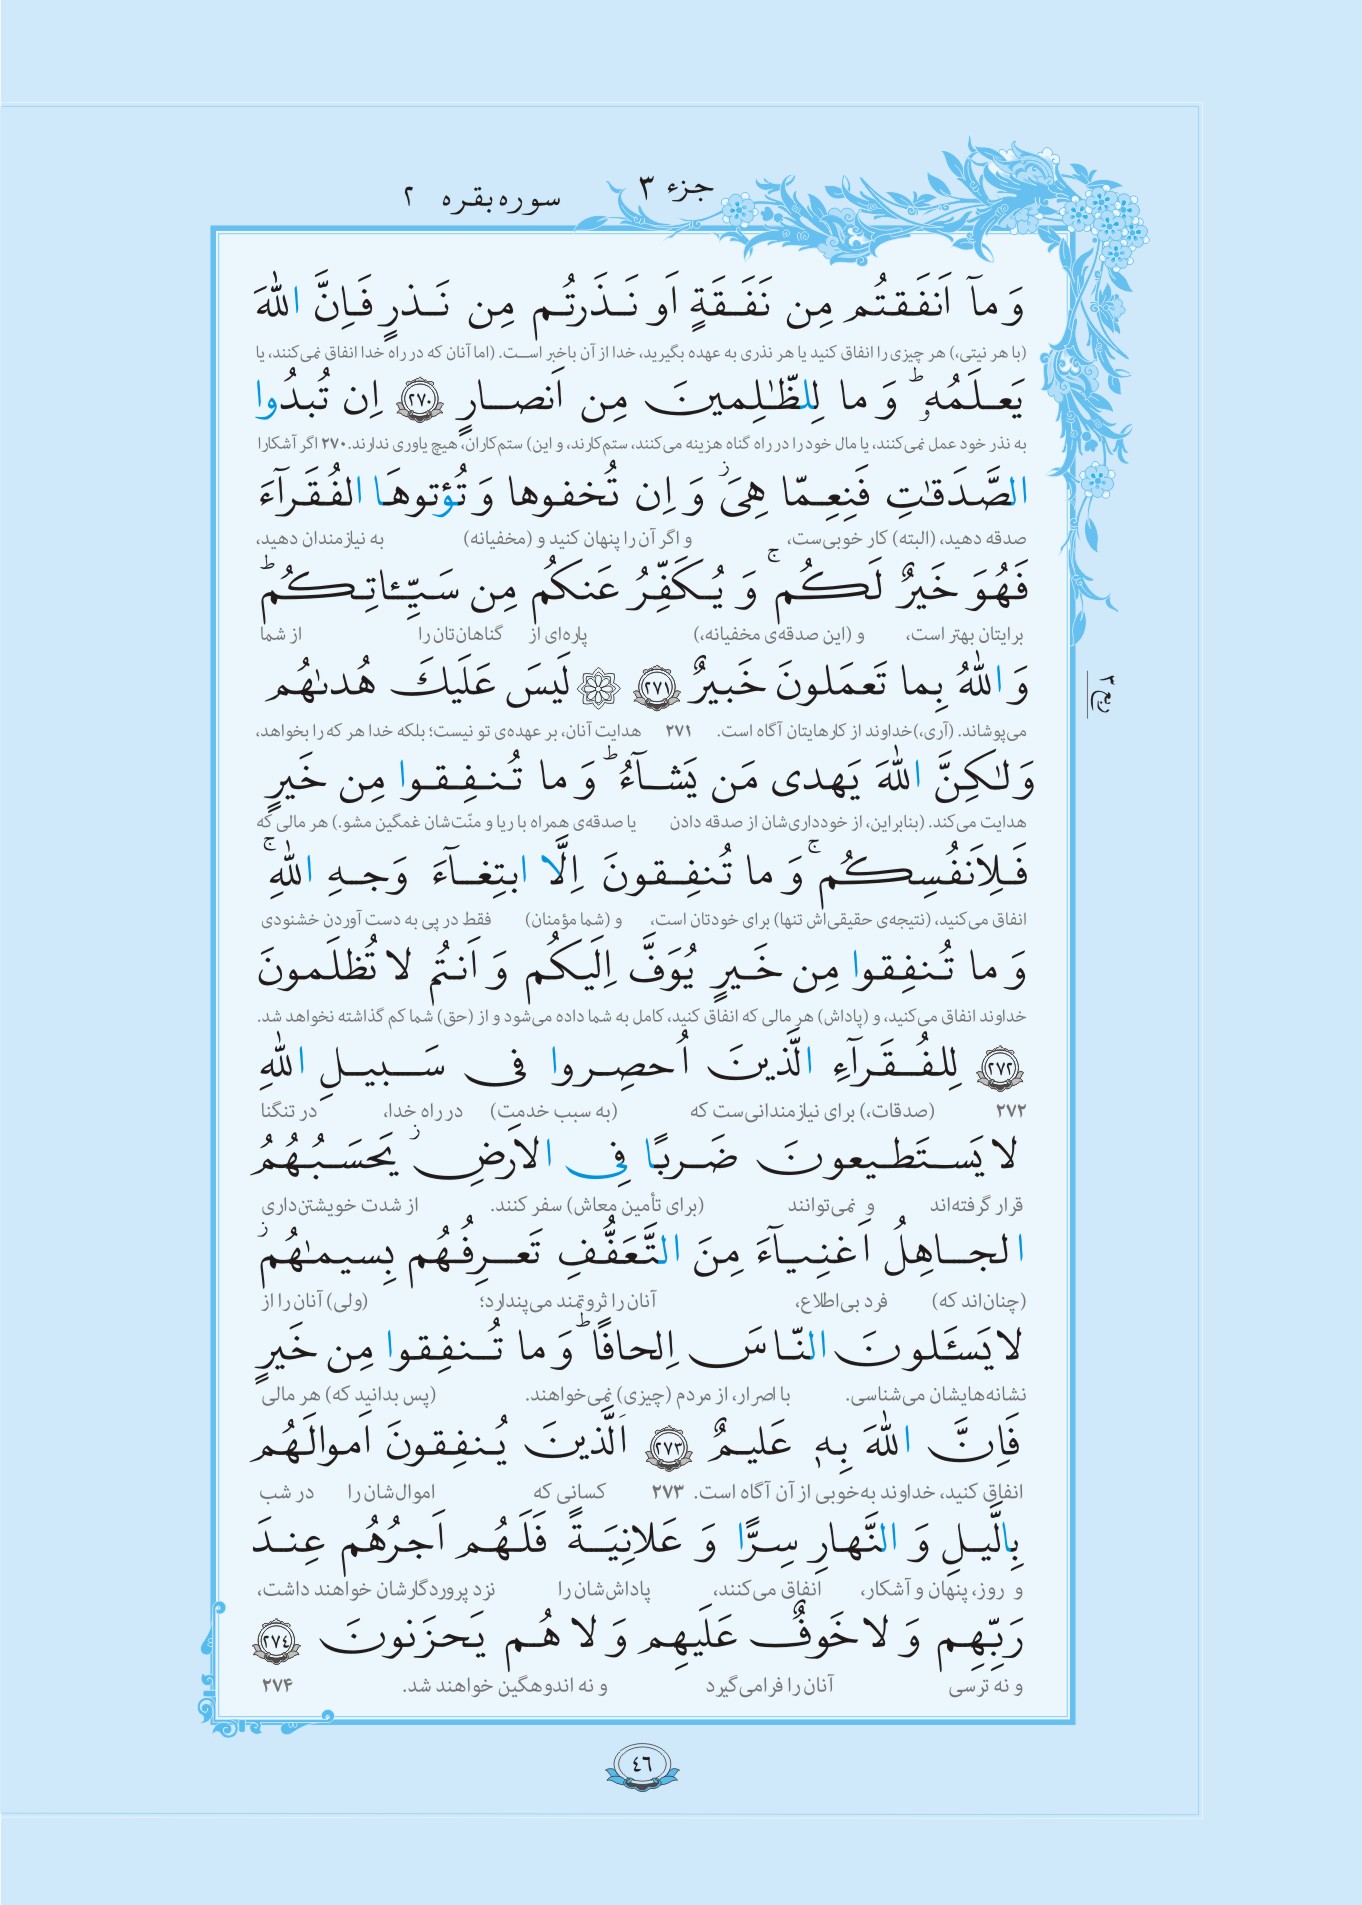 جزء ۳
سوره بقره ۲
وَ مآ اَنفَقتُم مِن نَفَقَةٍ اَو نَذَرتُم مِن نَذرٍ فَاِنَّ اللّٰهَ
(با هر نیتی،) هر چیزی را انفاق کنید یا هر نذری به عهده بگیرید، خدا از آن باخبر است. (اما آنان که در راه خدا انفاق نمی‌کنند، یا
یَعلَمُهٗ ؕ وَ ما لِلظّٰلِمینَ مِن اَنصارٍ ﴿٢٧٠﴾ اِن تُبدُوا
به نذر خود عمل نمی‌کنند، یا مال خود را در راه گناه هزینه می‌کنند، ستم‌کارند، و این) ستم‌کاران، هیچ یاوری ندارند. ۲۷۰ اگر آشکارا
الصَّدَقٰتِ فَنِعِمّا هِیَ ؗ وَ اِن تُخفوها وَ تُؤتوهَا الفُقَرآءَ
صدقه دهید، (البته) کار خوبی‌ست، و اگر آن را پنهان کنید و (مخفیانه) به نیازمندان دهید،
فَهُوَ خَیرٌ لَکُم ۚ وَ یُکَفِّرُ عَنکُم مِن سَیِّـٔاتِکُم ؕ
برایتان بهتر است، و (این صدقه‌ی مخفیانه،) پاره‌ای از گناهان‌تان را از شما
وَ اللّٰهُ بِما تَعمَلونَ خَبیرٌ ﴿٢٧١﴾ ۞ لَیسَ عَلَیكَ هُدىٰهُم
می‌پوشاند. (آری،) خداوند از کارهایتان آگاه است. ۲۷۱ هدایت آنان، بر عهده‌ی تو نیست؛ بلکه خدا هر که را بخواهد،
وَ لٰکِنَّ اللّٰهَ یَهدی مَن یَشآءُ ؕ وَ ما تُنفِقوا مِن خَیرٍ
هدایت می‌کند. (بنابراین، از خودداری‌شان از صدقه دادن یا صدقه‌ی همراه با ریا و منّت‌شان غمگین مشو.) هر مالی که
فَلِاَنفُسِکُم ۚ وَ ما تُنفِقونَ اِلَّا ابتِغآءَ وَجهِ اللّٰهِ ۚ
انفاق می‌کنید، (نتیجه‌ی حقیقی‌اش تنها) برای خودتان است، و (شما مؤمنان) فقط در پی به دست آوردن خشنودی
وَ ما تُنفِقوا مِن خَیرٍ یُوَفَّ اِلَیکُم وَ اَنتُم لا تُظلَمونَ
خداوند انفاق می‌کنید، و (پاداش) هر مالی که انفاق کنید، کامل به شما داده می‌شود و از (حق) شما کم گذاشته نخواهد شد.
﴿٢٧٢﴾ لِلفُقَرآءِ الَّذینَ اُحصِروا فی سَبیلِ اللّٰهِ
۲۷۲ (صدقات،) برای نیازمندانی‌ست که (به سبب خدمت) در راه خدا، در تنگنا
لا یَستَطیعونَ ضَربًا فِی الاَرضِ ؗ یَحسَبُهُمُ
قرار گرفته‌اند و نمی‌توانند (برای تأمین معاش) سفر کنند. از شدت خویشتن‌داری
الجاهِلُ اَغنِیآءَ مِنَ التَّعَفُّفِ تَعرِفُهُم بِسیمٰهُم ؗ
(چنان‌اند که) فرد بی‌اطلاع، آنان را ثروتمند می‌پندارد؛ (ولی) آنان را از
لا یَسـَٔلونَ النّاسَ اِلحافًا ؕ وَ ما تُنفِقوا مِن خَیرٍ
نشانه‌هایشان می‌شناسی. با اصرار، از مردم (چیزی) نمی‌خواهند. (پس بدانید که) هر مالی
فَاِنَّ اللّٰهَ بِهٖ عَلیمٌ ﴿٢٧٣﴾ اَلَّذینَ یُنفِقونَ اَموالَهُم
انفاق کنید، خداوند به‌خوبی از آن آگاه است. ۲۷۳ کسانی که اموال‌شان را در شب
بِالَّیلِ وَ النَّهارِ سِرًّا وَ عَلانِیَةً فَلَهُم اَجرُهُم عِندَ
و روز، پنهان و آشکار، انفاق می‌کنند، پاداش‌شان را نزد پروردگارشان خواهند داشت،
رَبِّهِم وَ لا خَوفٌ عَلَیهِم وَ لا هُم یَحزَنونَ ﴿٢٧٤﴾
و نه ترسی آنان را فرامی‌گیرد و نه اندوهگین خواهند شد. ۲۷۴
٤٦